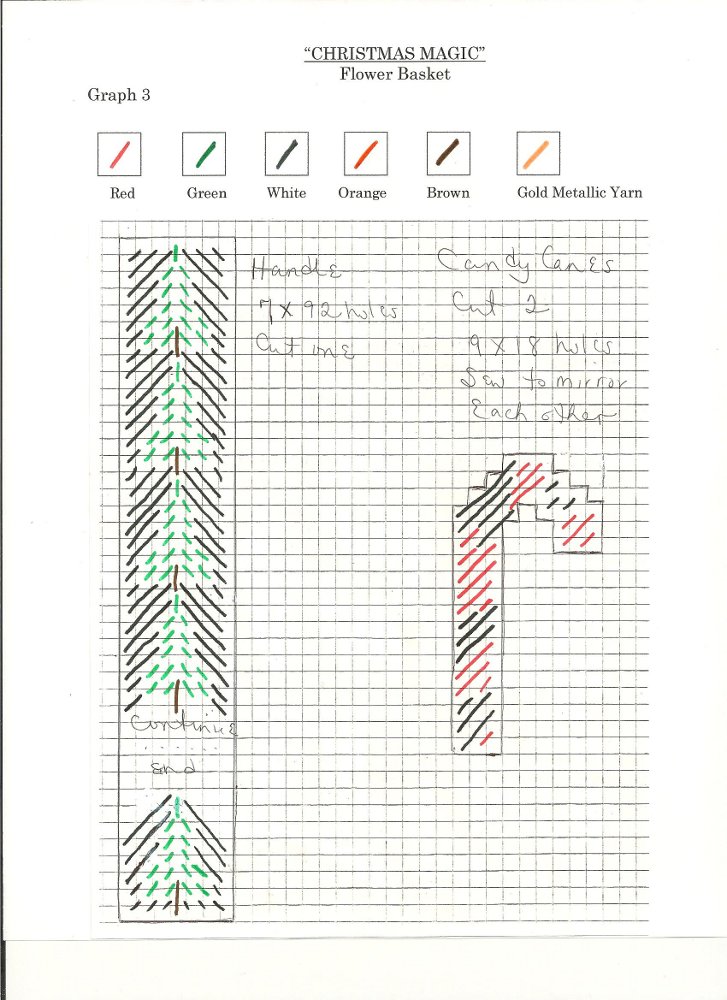 "CHRISTMAS MAGIC"
Flower Basket
Graph 3
Red Green White Orange Brown Gold Metallic Yarn
Handle
7 x 92 holes
Cut one
Candy Canes
Cut 2
9 x 18 holes
Sew to mirror
Each other
Continue
End